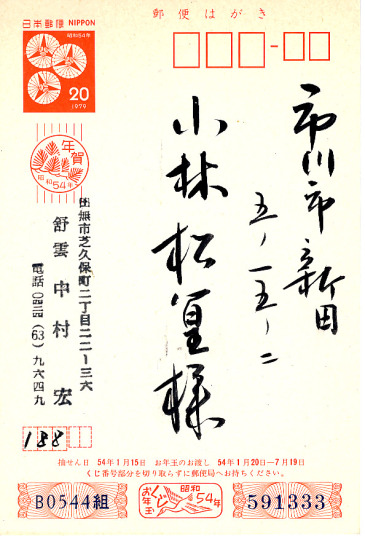 郵便はがき
日本郵便 NIPPON
昭和54年
20
1979
年賀
昭和54年
市川市新田
五ノ一五ノ二
小林松篁様
田無市芝久保町二丁目二二ー三六
舒雲 中村 宏
電話 (63) 九六四九
188
抽せん日 54年1月15日 お年玉のお渡し 54年1月20日ー7月19日
くじ番号部分を切り取らずに郵便局へお持ちください。
B0544組
お年玉くじ
昭和54年
591333